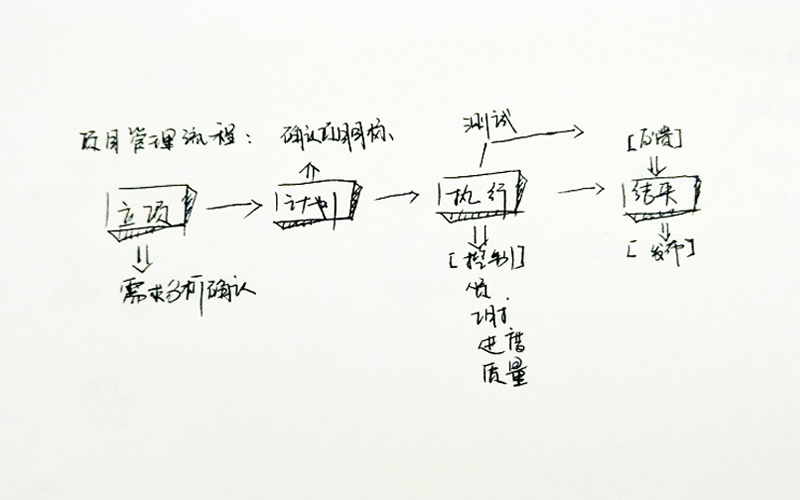 项目管理流程: 确认项目目标
测试
[反馈]
立项
计划
执行
结束
需求分析确认
[控制]
[发布]
进度
质量